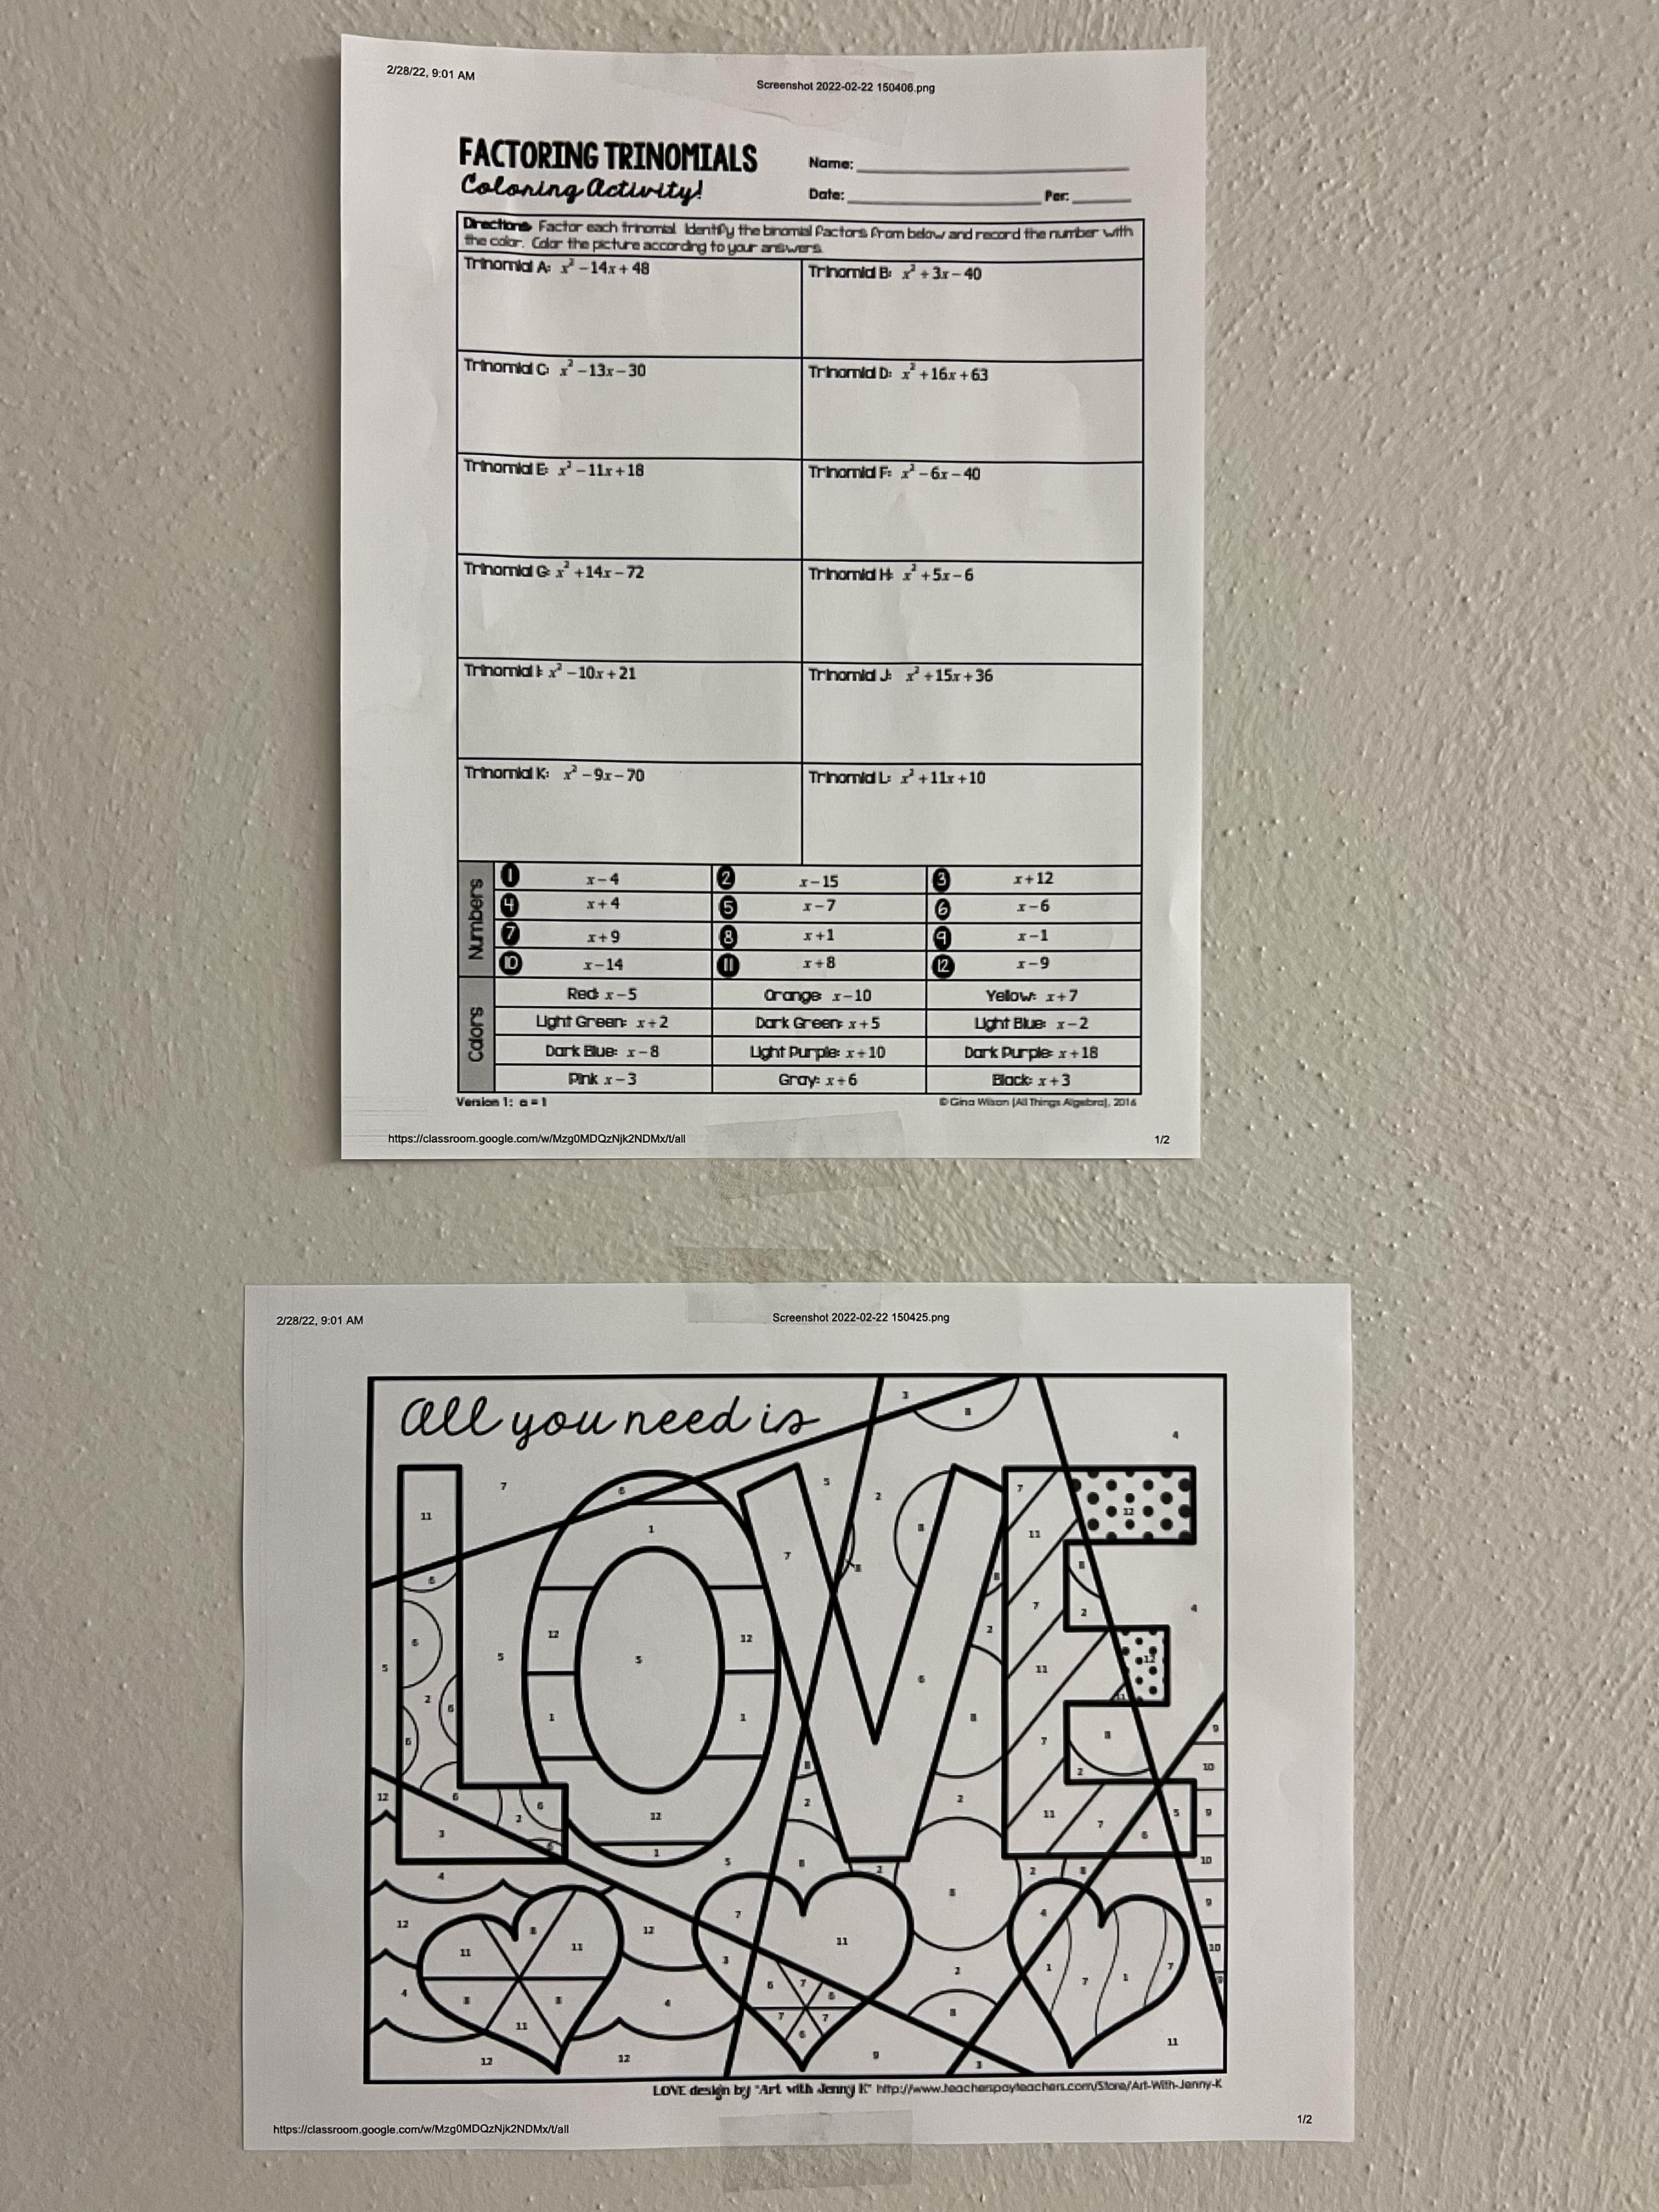 2/28/22, 9:01 AM
Screenshot 2022-02-22 150406.png
FACTORING TRINOMIALS
Coloring Activity!
Name:
Date: Per:
Directions: Factor each trinomial. Identify the binomial factors from below and record the number with
the color. Color the picture according to your answers.
Trinomial A: x² − 14x + 48
Trinomial B: x² + 3x − 40
Trinomial C: x² − 13x − 30
Trinomial D: x² + 16x + 63
Trinomial E: x² − 11x + 18
Trinomial F: x² − 6x − 40
Trinomial G: x² + 14x − 72
Trinomial H: x² + 5x − 6
Trinomial I: x² − 10x + 21
Trinomial J: x² + 15x + 36
Trinomial K: x² − 9x − 70
Trinomial L: x² + 11x + 10
Numbers
1 x − 4 2 x − 15 3 x + 12
4 x + 4 5 x − 7 6 x − 6
7 x + 9 8 x + 1 9 x − 1
10 x − 14 11 x + 8 12 x − 9
Colors
Red: x − 5 Orange: x − 10 Yellow: x + 7
Light Green: x + 2 Dark Green: x + 5 Light Blue: x − 2
Dark Blue: x − 8 Light Purple: x + 10 Dark Purple: x + 18
Pink: x − 3 Gray: x + 6 Black: x + 3
Version 1: a = 1
© Gina Wilson (All Things Algebra), 2016
https://classroom.google.com/w/Mzg0MDQzNjk2NDMx/t/all
1/2
2/28/22, 9:01 AM
Screenshot 2022-02-22 150425.png
All you need is
LOVE
3 8 4
7 6 5 2 7 12
11 1 7 8 11
6 8 8
6 12 12 8 7 2 4
5 5 5 2 11 12
2 6 6
6 1 1 8 7 8 9
8 2 10
12 6 2 6 12 2 2 11 7 5 9
3 1 6
4 5 8 2 2 8 10
12 11 8 11 12 7 11 8 4 9
3 10
4 8 8 4 6 7 6 2 1 7 1 7 9
11 7 7 8
12 12 6 9 3 11
LOVE design by "Art with Jenny K" http://www.teacherspayteachers.com/Store/Art-With-Jenny-K
https://classroom.google.com/w/Mzg0MDQzNjk2NDMx/t/all
1/2